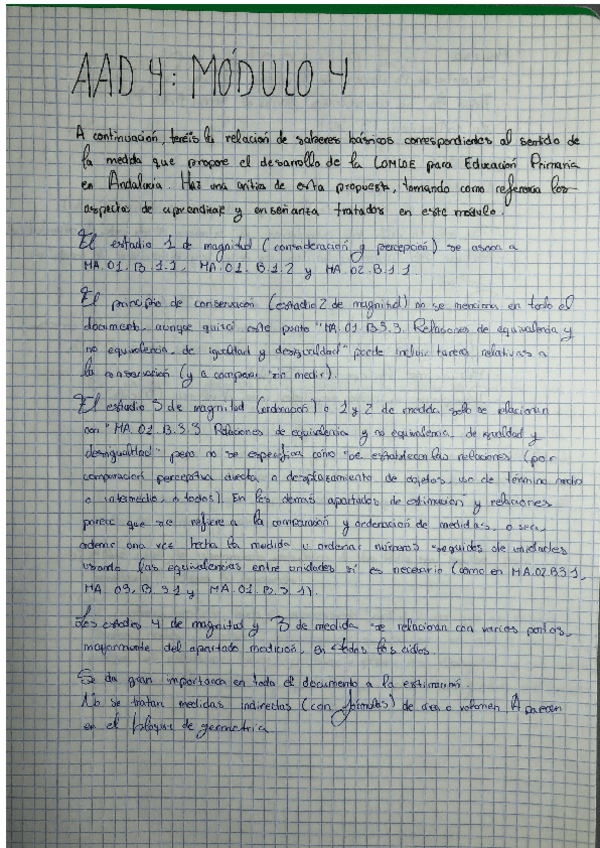 AAD 4: MÓDULO 4
A continuación, tenéis la relación de saberes básicos correspondientes al sentido de
la medida que propone el desarrollo de la LOMLOE para Educación Primaria
en Andalucía. Haz una crítica de esta propuesta, tomando como referencia los
aspectos de aprendizaje y enseñanza tratados en este módulo.
El estadio 1 de magnitud (consideración y percepción) se asocia a
MA.01.B.1.1, MA.01.B.1.2 y MA.02.B.1.1.
El principio de conservación (estadio 2 de magnitud) no se menciona en todo el
documento, aunque quizá este punto "MA.01.B.3.3. Relaciones de equivalencia y
no equivalencia, de igualdad y desigualdad" puede incluir tareas relativas a
la conservación (y a comparar sin medir).
El estadio 3 de magnitud (ordenación) o 1 y 2 de medida solo se relacionan
con "MA.01.B.3.3 Relaciones de equivalencia y no equivalencia, de igualdad y
desigualdad" pero no se especifica cómo se establecen las relaciones (por
comparación perceptiva directa o desplazamiento de objetos, uso de término medio
o intermedio, o todos). En los demás apartados de estimación y relaciones
parece que se refiere a la comparación y ordenación de medidas, o sea,
ordenar una vez hecha la medida u ordenar números seguidos de unidades
usando las equivalencias entre unidades si es necesario (como en MA.02.B.3.1,
MA.03.B.3.1 y MA.01.B.3.1).
Los estadios 4 de magnitud y 3 de medida se relacionan con varios puntos,
mayormente del apartado medición, en todos los ciclos.
Se da gran importancia en todo el documento a la estimación.
No se tratan medidas indirectas (con fórmulas) de área o volumen. Aparecen
en el bloque de geometría